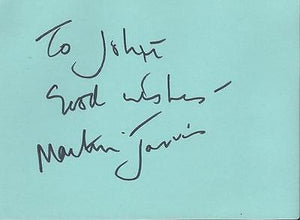 To John
Good wishes -
Martin Jarvis